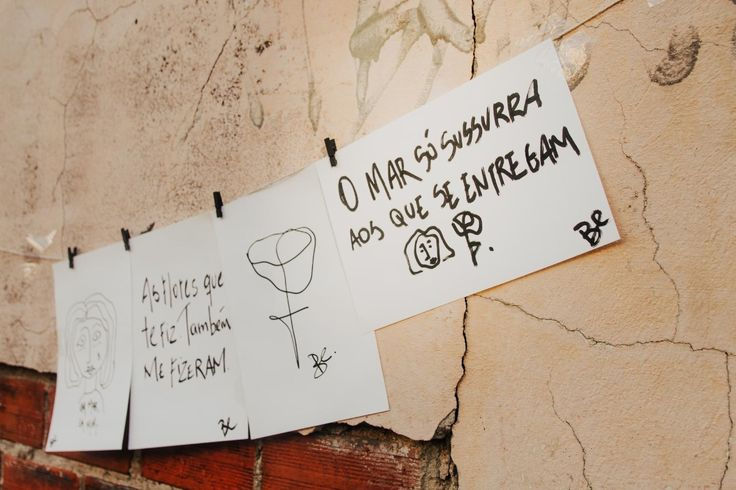 As flores que
te fiz Também
ME FIZERAM
Be
Be.
O MAR SÓ SUSSURRA
AOS QUE SE ENTREGAM
Be